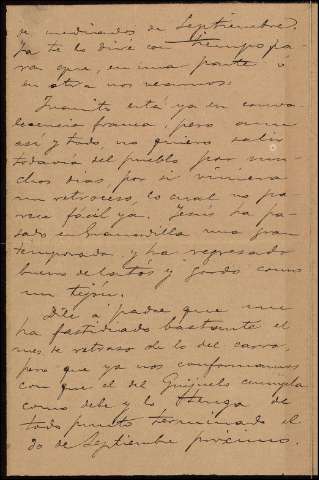 de mediados de Septiembre.
Ya te lo diré con tiempo pa-
ra que, en una parte ó
en otra nos veamos.
Juanito está ya en conva-
lecencia franca, pero aun
así y todo, no quiero salir
todavía del pueblo por mu-
chos dias, por si viniera
un retroceso, lo cual no pa-
rece fácil ya. Jesús ha pa-
sado en Granadilla una gran
temporada y ha regresado
bueno de todos y gordo como
un tejón.
Dile a padre que me
ha fastidiado bastante el
mes de retraso de lo del carro,
pero que ya nos conformamos
con que el del Guijuelo cumpla
como debe y lo tenga de
todo punto terminado el
30 de Septiembre próximo.